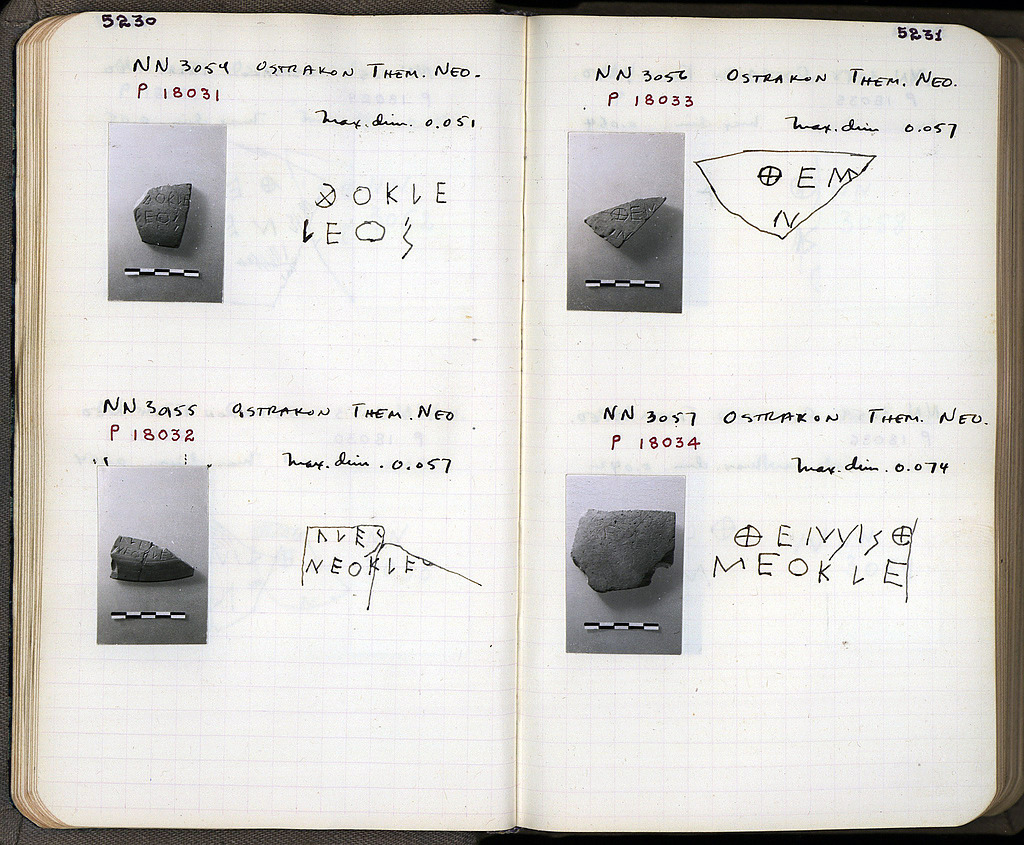 5230
NN 3054 OSTRAKON THEM. NEO.
P 18031
Max. dim. 0.051
⊗ΟΚLE
LEOS
NN 3055 OSTRAKON THEM. NEO
P 18032
Max. dim. 0.057
NEOKLE
5231
NN 3056 OSTRAKON THEM. NEO.
P 18033
Max. dim 0.057
⊕EM
N
NN 3057 OSTRAKON THEM. NEO.
P 18034
Max. dim. 0.074